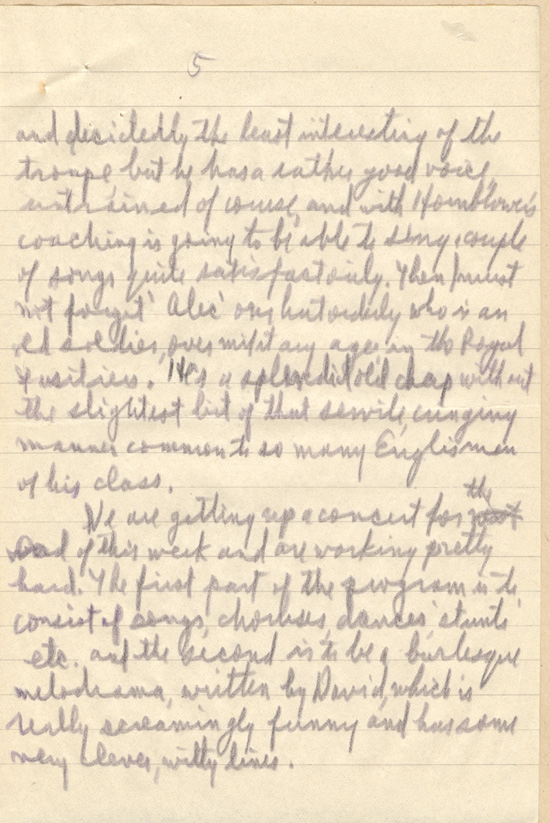 5
and decidedly the least interesting of the
troupe but he has a rather good voice,
untrained of course, and with Hornblower's
coaching is going to be able to sing a couple
of songs quite satisfactorily. Then I must
not forget 'Alec' our hut orderly who is an
old soldier, over military age in the Royal
Fusiliers. He's a splendid old chap without
the slightest bit of that servile, cringing
manner common to so many Englismen
of his class.
We are getting up a concert for the
end of this week and are working pretty
hard. The first part of the program is to
consist of songs, choruses, dances 'stunts'
etc. and the second is to be a burlesque
melodrama, written by David, which is
really screamingly funny and has some
very clever, witty lines.